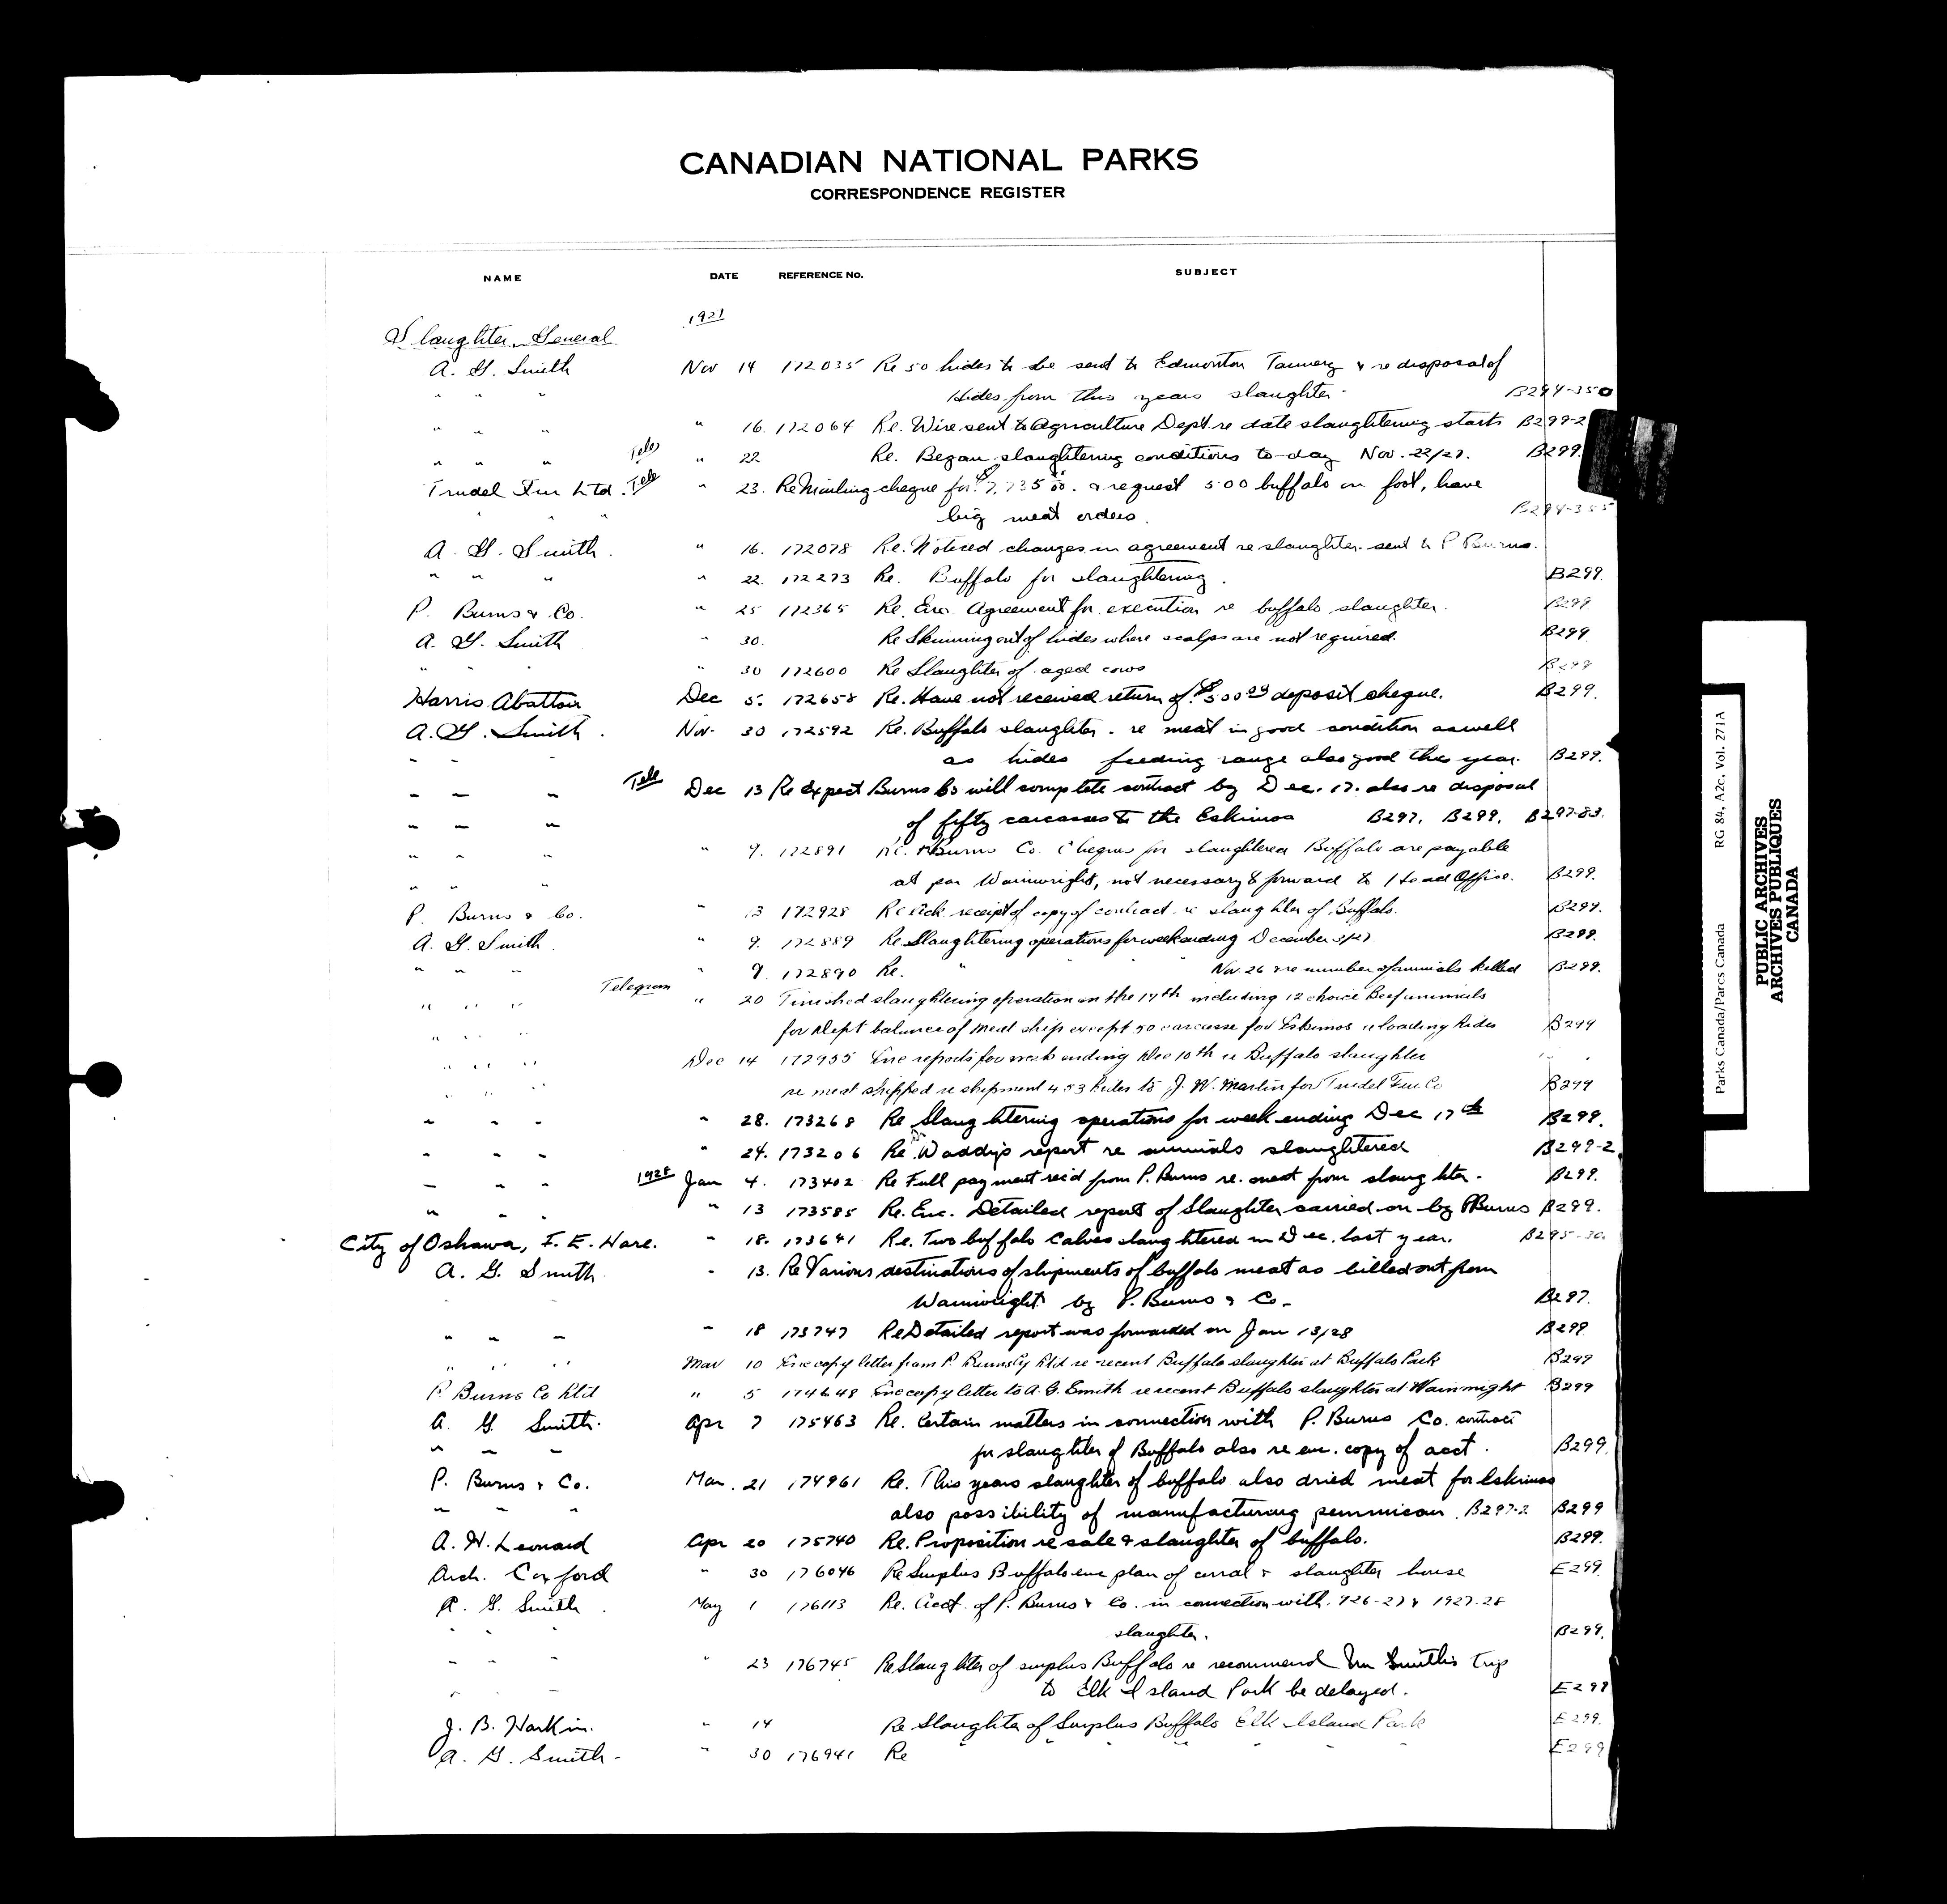 CANADIAN NATIONAL PARKS
CORRESPONDENCE REGISTER
NAME DATE REFERENCE No. SUBJECT
Slaughter, General 1927
A. G. Smith Nov 14 172035 Re 50 hides to be sent to Edmonton Tannery & re disposal of
" " " Hides from this years slaughter B294-350
" " " " 16. 172064 Re. Wire sent to Agriculture Dept re date slaughtering starts B299-2
" " " Tele " 22 Re. Began slaughtering conditions to-day Nov. 22/27. B299.
Trudel Fur Ltd. Tele " 23. Re Mailing cheque for $7,735 00. & request 500 buffalo on foot, have
" " " big meat orders. B294-355
A. G. Smith. " 16. 172078 Re. Noticed changes in agreement re slaughter sent to P Burns.
" " " " 22. 172273 Re. Buffalo for slaughtering. B299.
P. Burns & Co. " 25 172365 Re. Enc. Agreement for execution re buffalo slaughter. B299
A. G. Smith " 30. Re Skinning out of hides where scalps are not required. B299
" " " " 30 172600 Re Slaughter of aged cows B299
Harris Abattoir Dec 5. 172658 Re. Have not received return of $500 00 deposit cheque. B299.
A. G. Smith. Nov. 30 172592 Re. Buffalo slaughter. re meat in good condition as well
" " " as hides feeding range also good this year. B299.
" " " Tele Dec 13 Re Expect Burns Co will complete contract by Dec. 17. also re disposal
" " " of fifty carcasses to the Eskimos B297, B299, B297-83.
" " " " 9. 172891 Re. P Burns Co. Cheques for slaughtered Buffalo are payable
" " " at par Wainwright, not necessary to forward to Head Office. B299.
P. Burns & Co. " 13 172928 Re Ack receipt of copy of contract re slaughter of Buffalo. B299.
A. G. Smith. " 9. 172889 Re Slaughtering operations for week ending December 3/27. B299.
" " " " 9. 172890 Re. " Nov. 26 & re number of animals killed B299.
" " " Telegram " 20 Finished slaughtering operation on the 17th including 12 choice Beef animals
" " " for Dept balance of meat ship except 50 carcasse for Eskimos & loading hides B299
" " " Dec 14 172955 Enc reports for week ending Dec 10th re Buffalo slaughter
" " " re meat shipped re shipment 453 hides to J. W. Martin for Trudel Fur Co B299
" " " " 28. 173268 Re Slaughtering operations for week ending Dec 17th B299.
" " " " 24. 173206 Re Waddy's report re animals slaughtered B299-2
" " " 1928 Jan 4. 173402 Re Full payment rec'd from P. Burns re. meat from slaughter. B299.
" " " " 13 173585 Re. Enc. Detailed report of Slaughter carried on by P Burns B299.
City of Oshawa, F. E. Hare. " 18. 173641 Re. Two buffalo Calves slaughtered in Dec. last year. B295-30.
A. G. Smith " 13. Re Various destinations of shipments of buffalo meat as billed out from
Wainwright by P. Burns & Co. B297.
" " " " 18 173747 Re Detailed report was forwarded on Jan 13/28 B299
" " " Mar 10 Enc copy letter from P. Burns Co Ltd re recent Buffalo slaughter at Buffalo Park B299
P. Burns Co Ltd " 5 174648 Enc copy letter to A. G. Smith re recent Buffalo slaughter at Wainwright B299
A. G. Smith. Apr 7 175463 Re. Certain matters in connection with P. Burns Co. contract
" " " for slaughter of Buffalo also re enc. copy of acct. B299.
P. Burns & Co. Mar. 21 174961 Re. This years slaughter of buffalo also dried meat for Eskimos
" " " also possibility of manufacturing pemmican. B297-2 B299
A. H. Leonard Apr 20 175740 Re. Proposition re sale & slaughter of buffalo. B299.
Arch. Coxford " 30 176046 Re Surplus Buffalo enc plan of corral & slaughter house E299.
A. G. Smith. May 1 176113 Re. Acct. of P. Burns & Co. in connection with. 926-27 & 1927-28
" " " slaughter. B299.
" " " " 23 176745 Re Slaughter of surplus Buffalo re recommend Mr Smith's trip
" " " to Elk Island Park be delayed. E299
J. B. Harkin. " 14 Re Slaughter of Surplus Buffalo Elk Island Park E299.
A. G. Smith. " 30 176941 Re " " " " " " E299
Parks Canada/Parcs Canada RG 84, A2c, Vol. 271A
PUBLIC ARCHIVES
ARCHIVES PUBLIQUES
CANADA